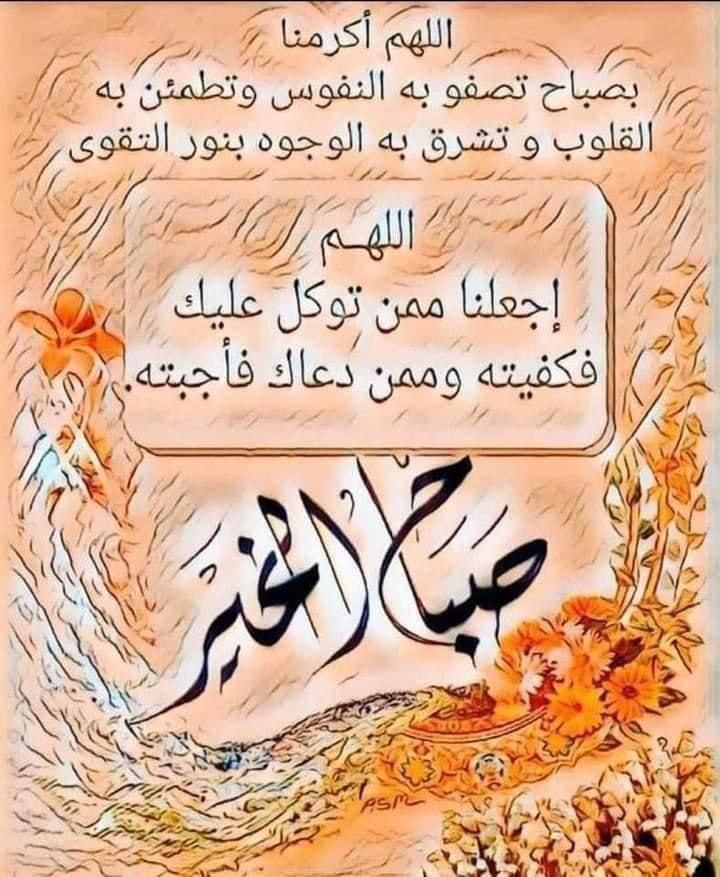 اللهم أكرمنا
بصباح تصفو به النفوس وتطمئن به
القلوب و تشرق به الوجوه بنور التقوى
اللهـم
إجعلنا ممن توكل عليك
فكفيته وممن دعاك فأجبته.
صباح الخير
ASM